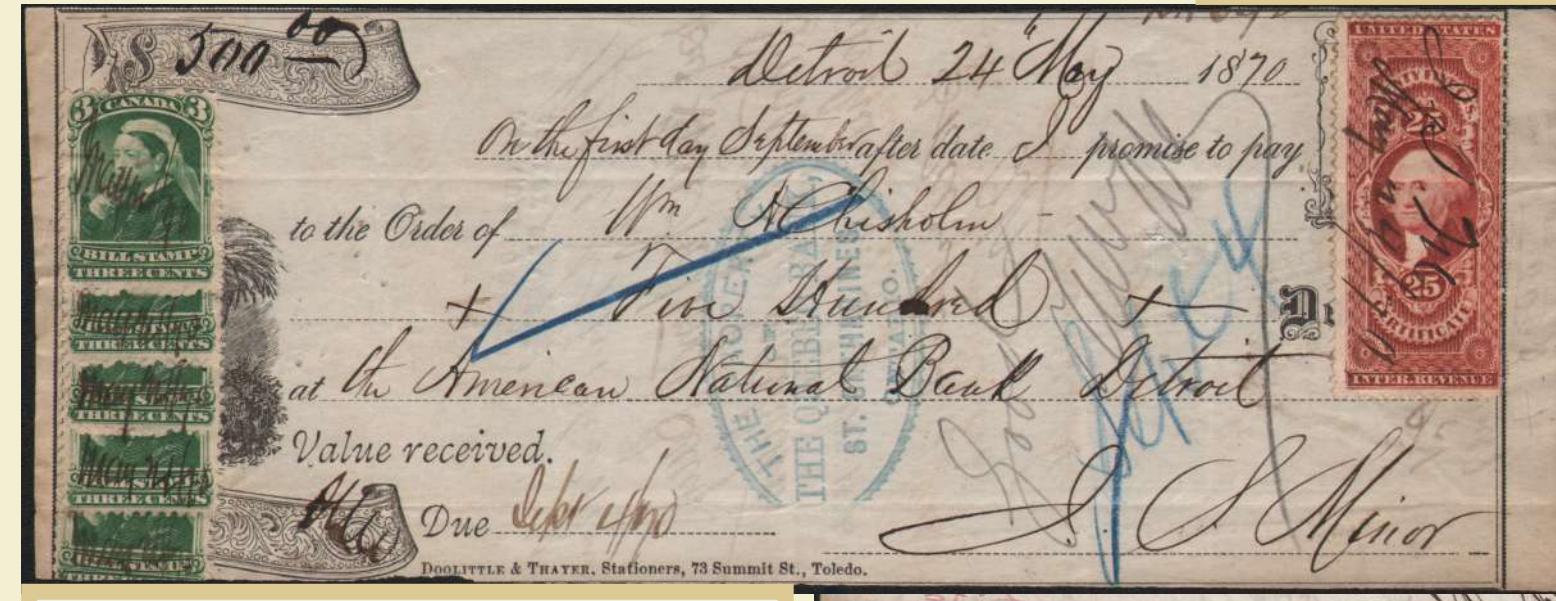 $ 500 00
Detroit 24 May 1870
On the first day September after date I promise to pay
to the Order of Wm A Chisholm
+ Five Hundred +
at the American National Bank Detroit
Value received.
Due Sept 1/70
J. S. Minor
DOOLITTLE & THAYER, Stationers, 73 Summit St., Toledo.
3 CANADA 3
BILL STAMP
THREE CENTS
THREE CENTS
THREE CENTS
THREE CENTS
THREE CENTS
UNITED STATES
25
25
CERTIFICATE
INTER. REVENUE
THE
THE QUEBEC BANK,
ST. CATHARINES
ONTARIO.